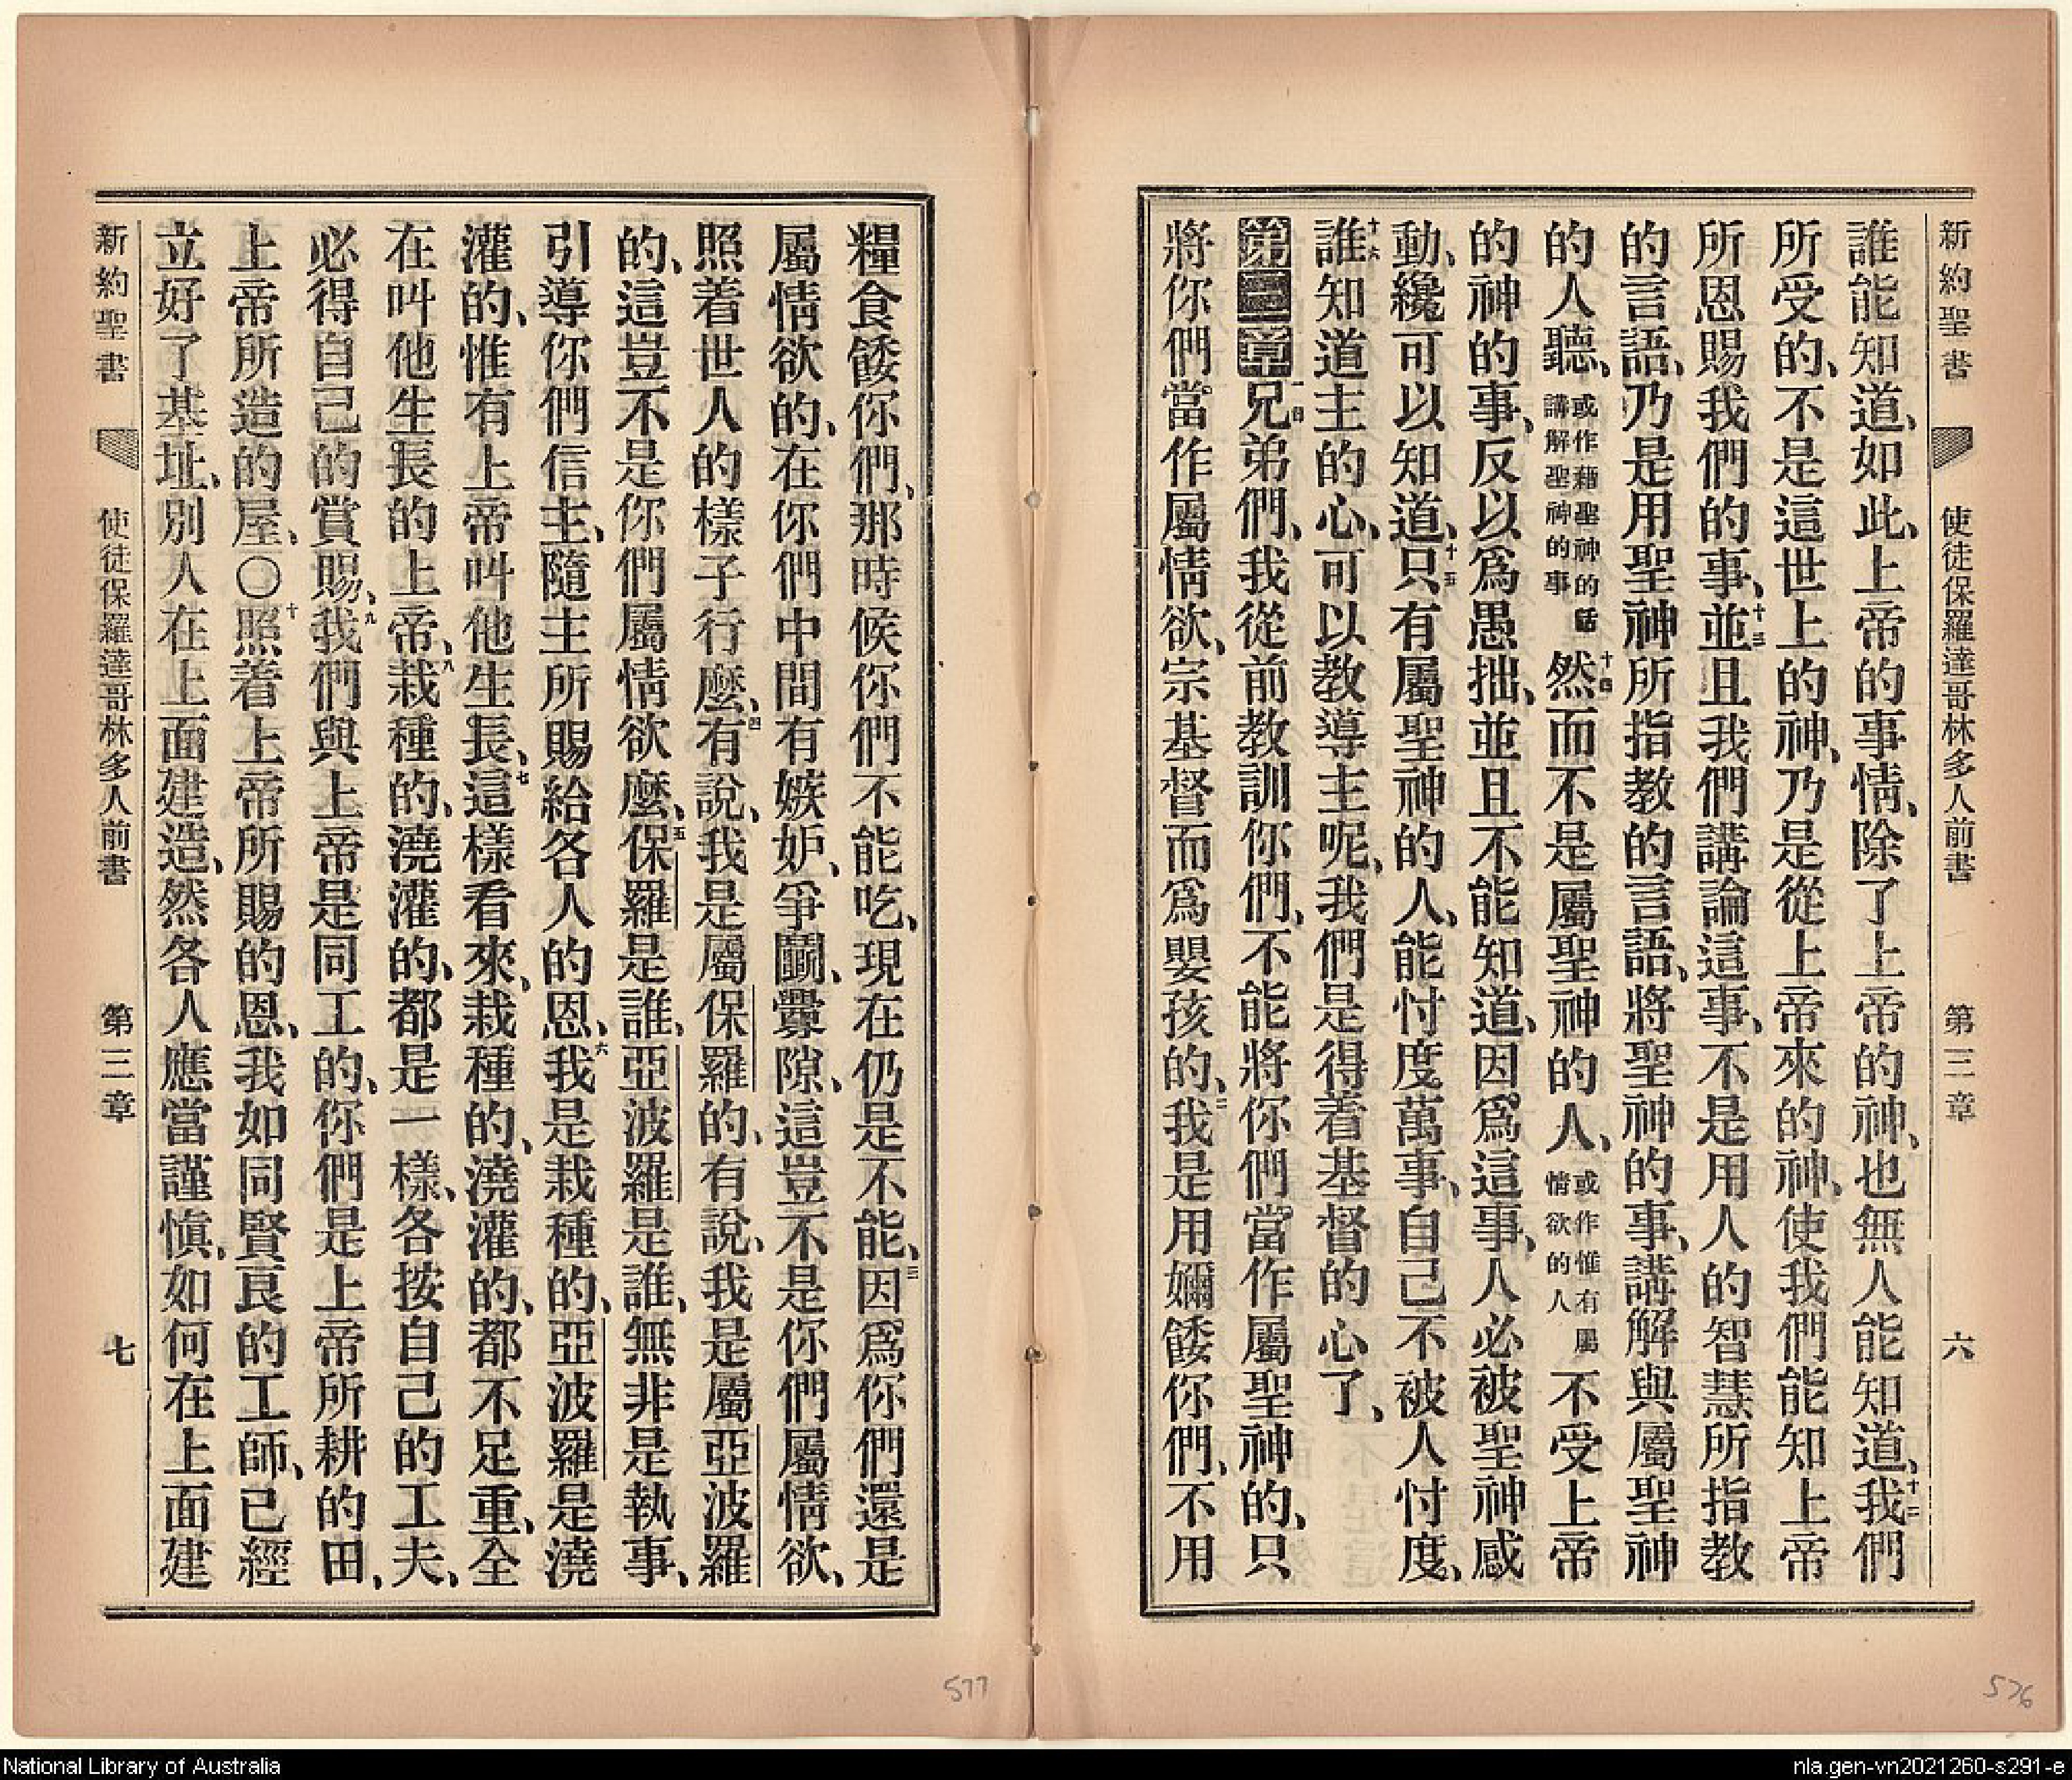 新約聖書 使徒保羅達哥林多人前書 第三章 六
誰能知道、如此、上帝的事情、除了上帝的神、也無人能知道、十二我們
所受的、不是這世上的神、乃是從上帝來的神、使我們能知上帝
所恩賜我們的事、十三並且我們講論這事、不是用人的智慧所指教
的言語、乃是用聖神所指教的言語、將聖神的事、講解與屬聖神
的人聽、或作藉聖神的話講解聖神的事 十四然而不是屬聖神的人、或作惟有屬情欲的人 不受上帝
的神的事、反以爲愚拙、並且不能知道、因爲這事、人必被聖神感
動、纔可以知道、十五只有屬聖神的人、能忖度萬事、自己不被人忖度、
十六誰知道主的心、可以教導主呢、我們是得着基督的心了、
第三章 一兄弟們、我從前教訓你們、不能將你們當作屬聖神的、只
將你們當作屬情欲、宗基督而爲嬰孩的、二我是用嬭餧你們、不用
糧食餧你們、那時候你們不能吃、現在仍是不能、三因爲你們還是
屬情欲的、在你們中間有嫉妒、爭鬭、釁隙、這豈不是你們屬情欲、
照着世人的樣子行麼、四有說、我是屬保羅的、有說、我是屬亞波羅
的、這豈不是你們屬情欲麼、五保羅是誰、亞波羅是誰、無非是執事、
引導你們信主、隨主所賜給各人的恩、六我是栽種的、亞波羅是澆
灌的、惟有上帝叫他生長、七這樣看來、栽種的、澆灌的、都不足重、全
在叫他生長的上帝、八栽種的、澆灌的、都是一樣、各按自己的工夫、
必得自己的賞賜、九我們與上帝是同工的、你們是上帝所耕的田、
上帝所造的屋、〇十照着上帝所賜的恩、我如同賢良的工師、已經
立好了基址、別人在上面建造、然各人應當謹慎、如何在上面建
新約聖書 使徒保羅達哥林多人前書 第三章 七
577
576
National Library of Australia
nla.gen-vn2021260-s291-e